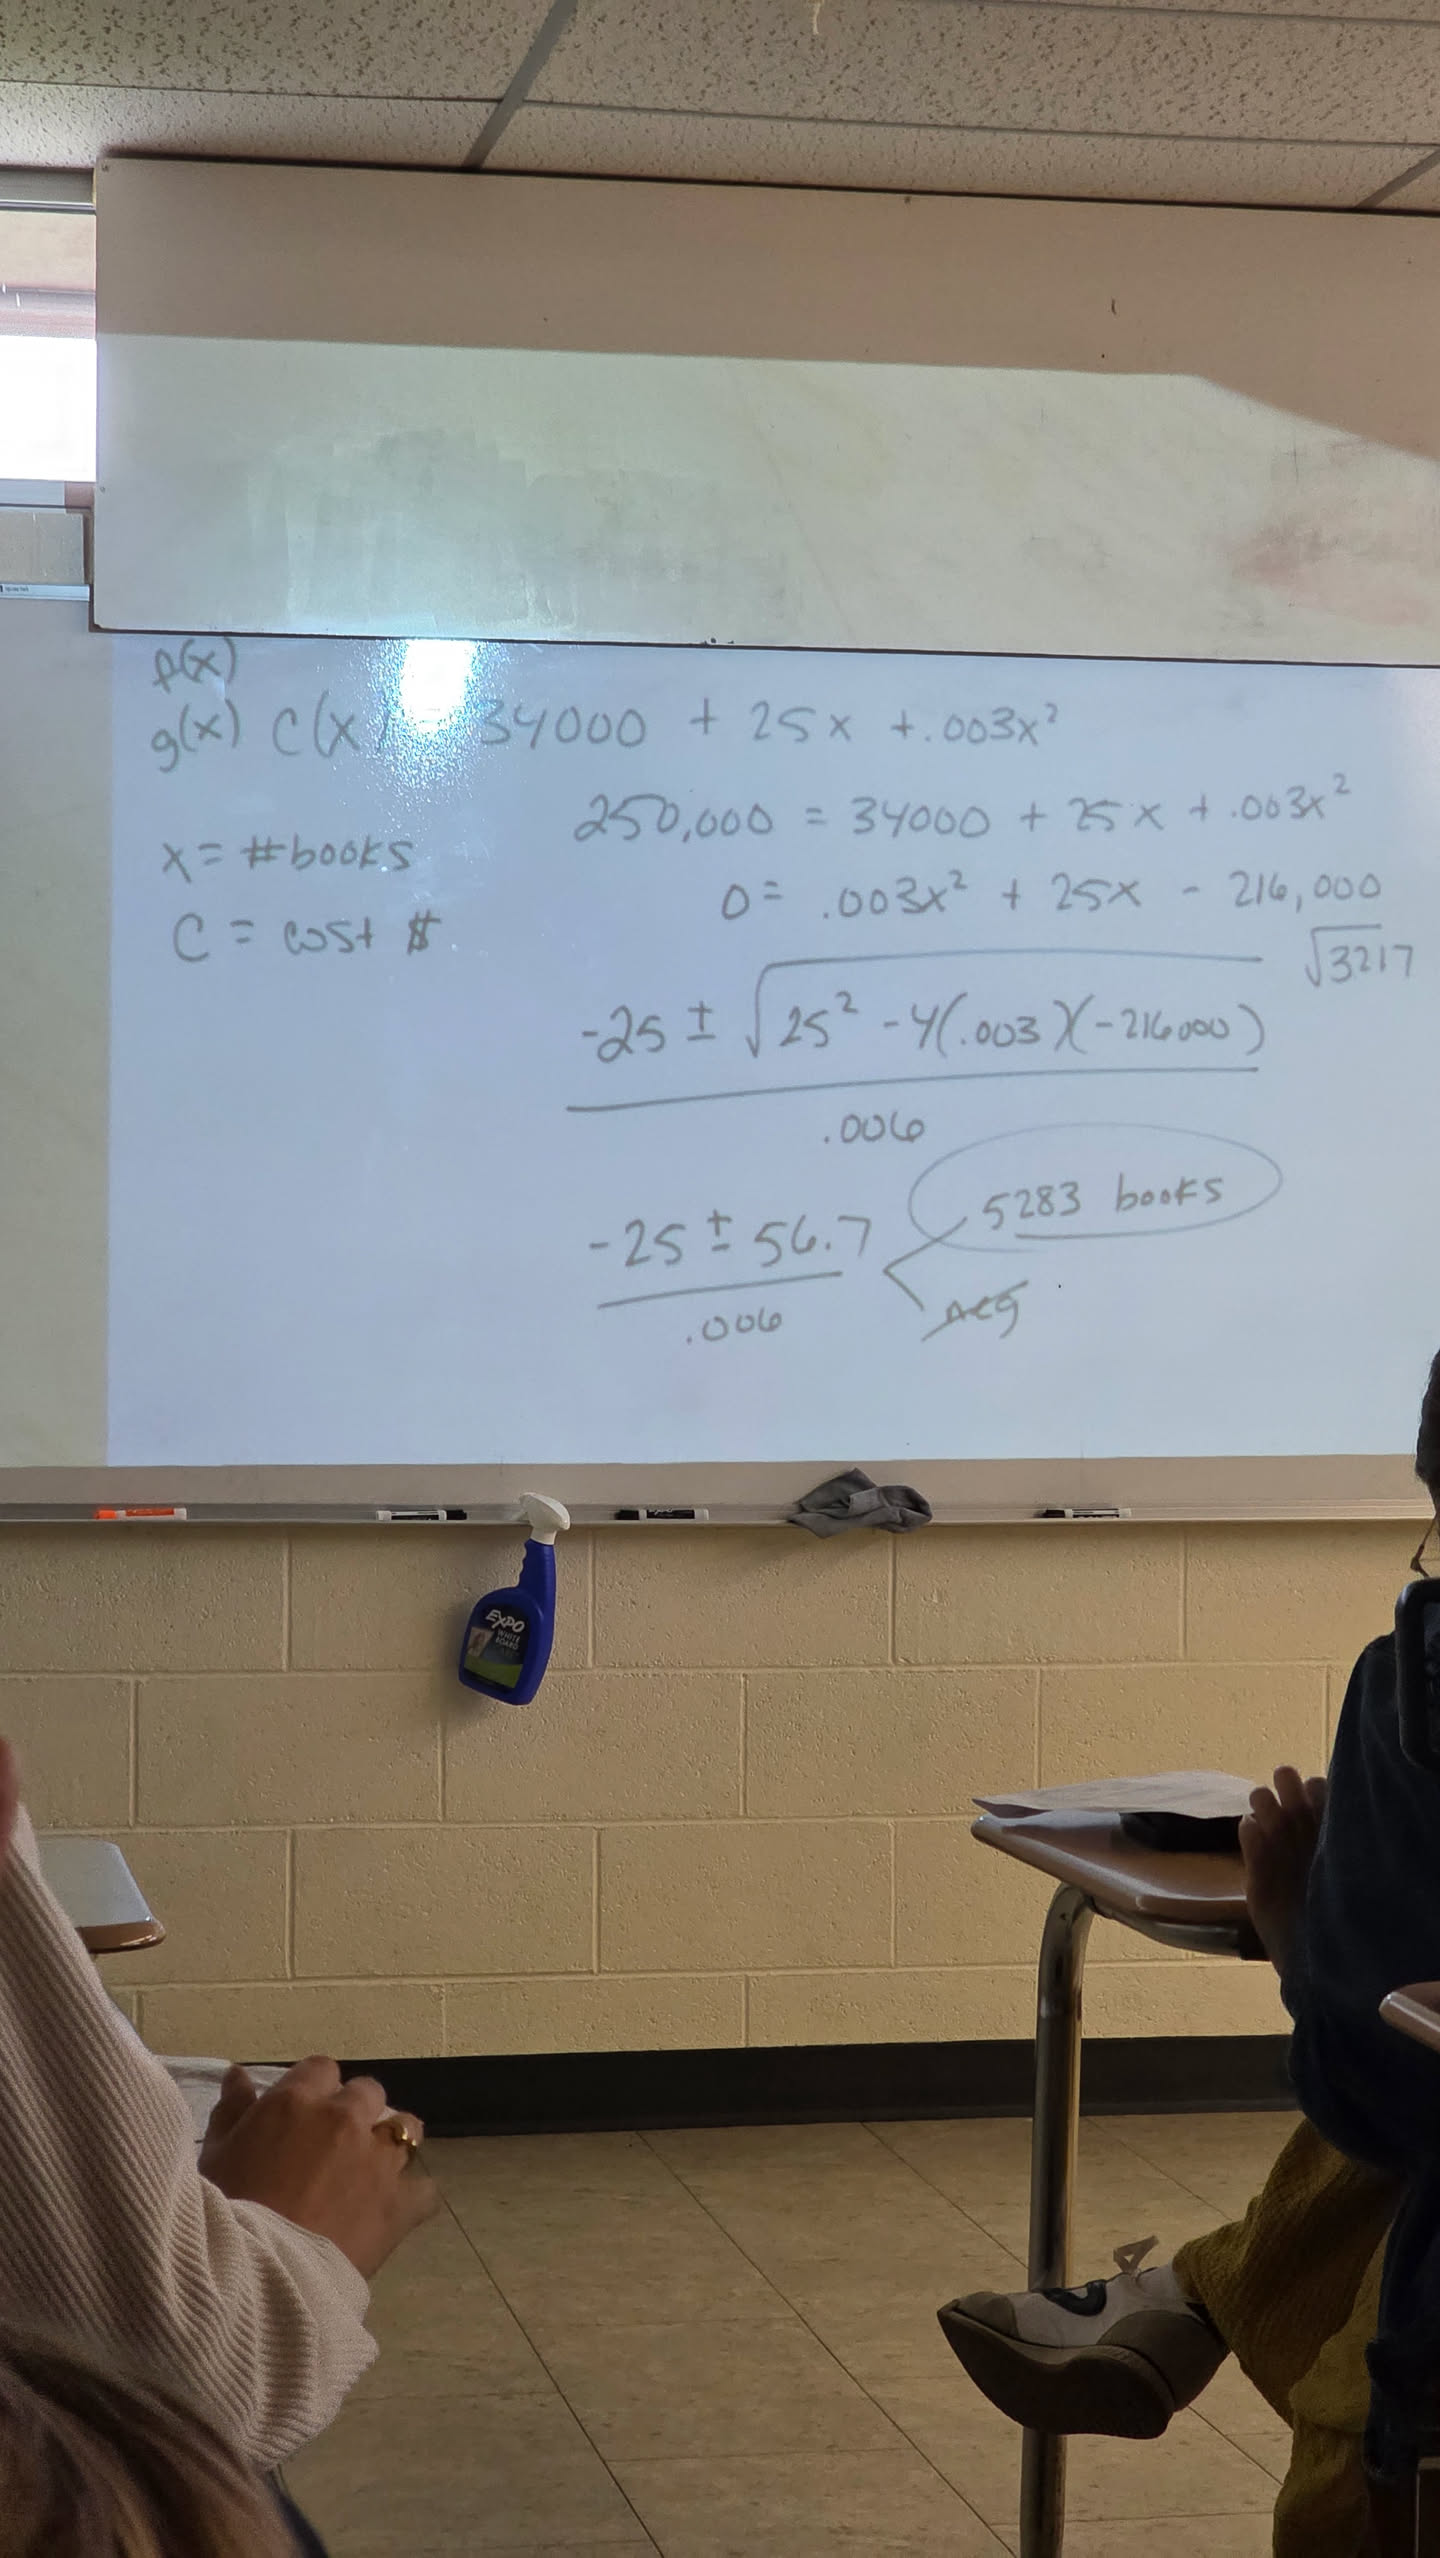 f(x)
g(x) C(x) = 34000 + 25x + .003x²
x = #books
C = cost $
250,000 = 34000 + 25x + .003x²
0 = .003x² + 25x - 216,000
√3217
-25 ± √25² - 4(.003)(-216000)
.006
-25 ± 56.7
.006
5283 books
neg
EXPO
WHITE
BOARD